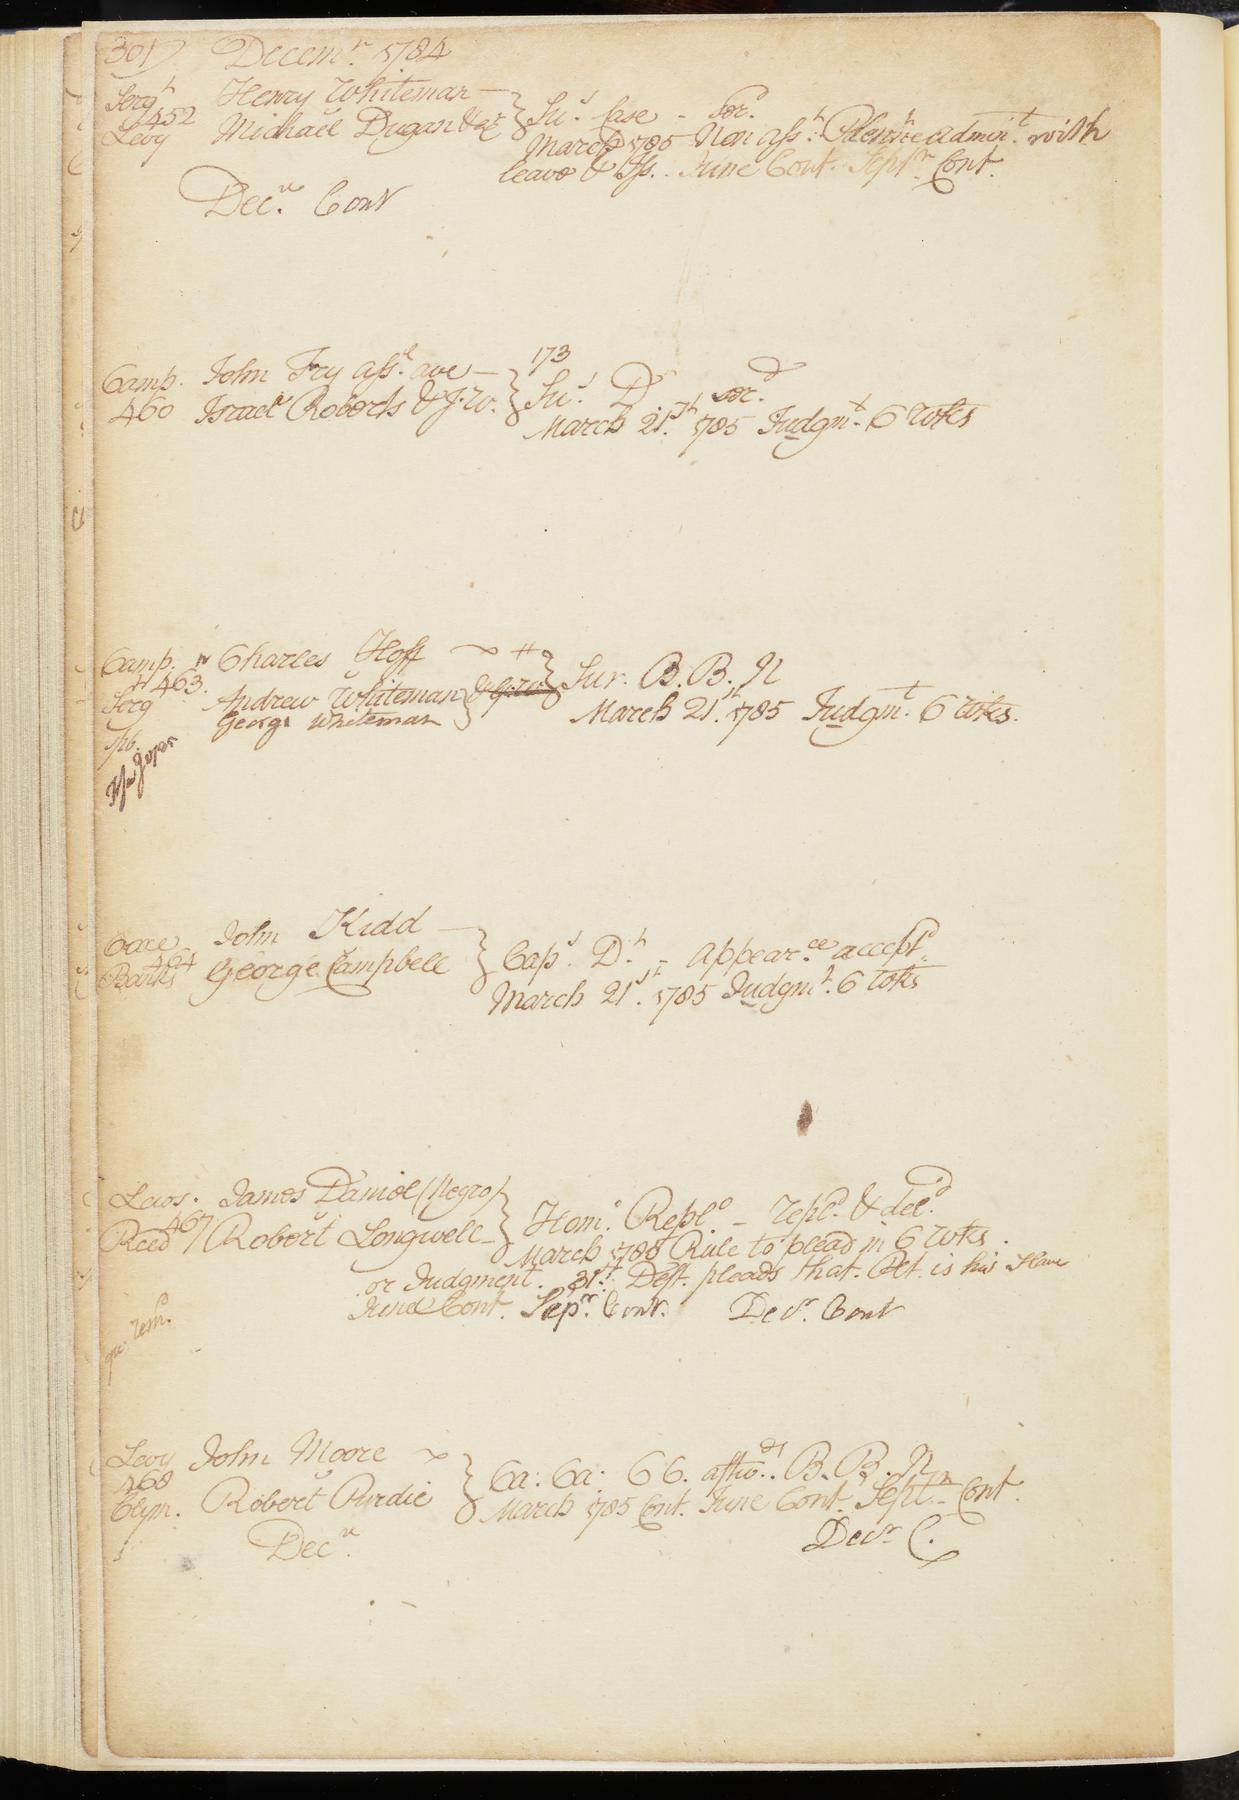 301) Decemr. 1784
Sergt Henry Whiteman — } Sus. Case - ser.
452
Levy Michael Dugan &c } March 1785 Non Asst. Plene admint. with
leave & Iss. June Cont. Septr. Cont.
Decr. Cont
173
Camp. John Fry assee. ave — } Sus. D ser.
460 Israel Roberts & J. W. } March 21st. 1785 Judgmt. 6 wks
Camp. Charles Hoff } Sur. B. B. N
463.
Serg Andrew Whiteman } March 21st. 1785 Judgmt. 6 wks.
George Whiteman
John Kidd — } Caps. Dt. - appearce accepd.
464
Banks George Campbell } March 21st. 1785 Judgmt. 6 wks
Lews. James Daniel (Negro) } Homo. Replo. - repld. & deld.
467
Reed Robert Longwell } March 1785 Rule to plead in 6 wks.
or Judgment. 31st. Deft. pleads that Plt. is his Slave
June Cont. Sepr. Cont. Decr. Cont
Levy John Moore } Ca: Ca: CC. aftwds. B. B. N
468
Clym. Robert Purdie } March 1785 Cont. June Cont. Septr. Cont.
Decr. Decr. C.